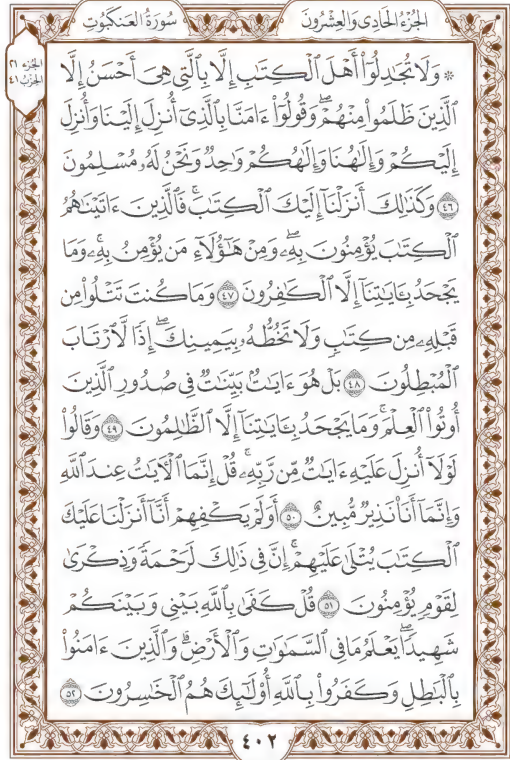 الجُزْءُ الحَادِى وَالعِشْرُونَ
سُورَةُ العَنكَبُوتِ
الجزء ٢١
الحزب ٤١
۞ وَلَا تُجَٰدِلُوٓا۟ أَهْلَ ٱلْكِتَٰبِ إِلَّا بِٱلَّتِى هِىَ أَحْسَنُ إِلَّا
ٱلَّذِينَ ظَلَمُوا۟ مِنْهُمْ ۖ وَقُولُوٓا۟ ءَامَنَّا بِٱلَّذِىٓ أُنزِلَ إِلَيْنَا وَأُنزِلَ
إِلَيْكُمْ وَإِلَٰهُنَا وَإِلَٰهُكُمْ وَٰحِدٌ وَنَحْنُ لَهُۥ مُسْلِمُونَ
٤٦ وَكَذَٰلِكَ أَنزَلْنَآ إِلَيْكَ ٱلْكِتَٰبَ ۚ فَٱلَّذِينَ ءَاتَيْنَٰهُمُ
ٱلْكِتَٰبَ يُؤْمِنُونَ بِهِۦ ۖ وَمِنْ هَٰٓؤُلَآءِ مَن يُؤْمِنُ بِهِۦ ۚ وَمَا
يَجْحَدُ بِـَٔايَٰتِنَآ إِلَّا ٱلْكَٰفِرُونَ ٤٧ وَمَا كُنتَ تَتْلُوا۟ مِن
قَبْلِهِۦ مِن كِتَٰبٍ وَلَا تَخُطُّهُۥ بِيَمِينِكَ ۖ إِذًا لَّٱرْتَابَ
ٱلْمُبْطِلُونَ ٤٨ بَلْ هُوَ ءَايَٰتٌۢ بَيِّنَٰتٌ فِى صُدُورِ ٱلَّذِينَ
أُوتُوا۟ ٱلْعِلْمَ ۚ وَمَا يَجْحَدُ بِـَٔايَٰتِنَآ إِلَّا ٱلظَّٰلِمُونَ ٤٩ وَقَالُوا۟
لَوْلَآ أُنزِلَ عَلَيْهِ ءَايَٰتٌ مِّن رَّبِّهِۦ ۖ قُلْ إِنَّمَا ٱلْـَٔايَٰتُ عِندَ ٱللَّهِ
وَإِنَّمَآ أَنَا۠ نَذِيرٌ مُّبِينٌ ٥٠ أَوَلَمْ يَكْفِهِمْ أَنَّآ أَنزَلْنَا عَلَيْكَ
ٱلْكِتَٰبَ يُتْلَىٰ عَلَيْهِمْ ۚ إِنَّ فِى ذَٰلِكَ لَرَحْمَةً وَذِكْرَىٰ
لِقَوْمٍ يُؤْمِنُونَ ٥١ قُلْ كَفَىٰ بِٱللَّهِ بَيْنِى وَبَيْنَكُمْ
شَهِيدًا ۖ يَعْلَمُ مَا فِى ٱلسَّمَٰوَٰتِ وَٱلْأَرْضِ ۗ وَٱلَّذِينَ ءَامَنُوا۟
بِٱلْبَٰطِلِ وَكَفَرُوا۟ بِٱللَّهِ أُو۟لَٰٓئِكَ هُمُ ٱلْخَٰسِرُونَ ٥٢
٤٠٢